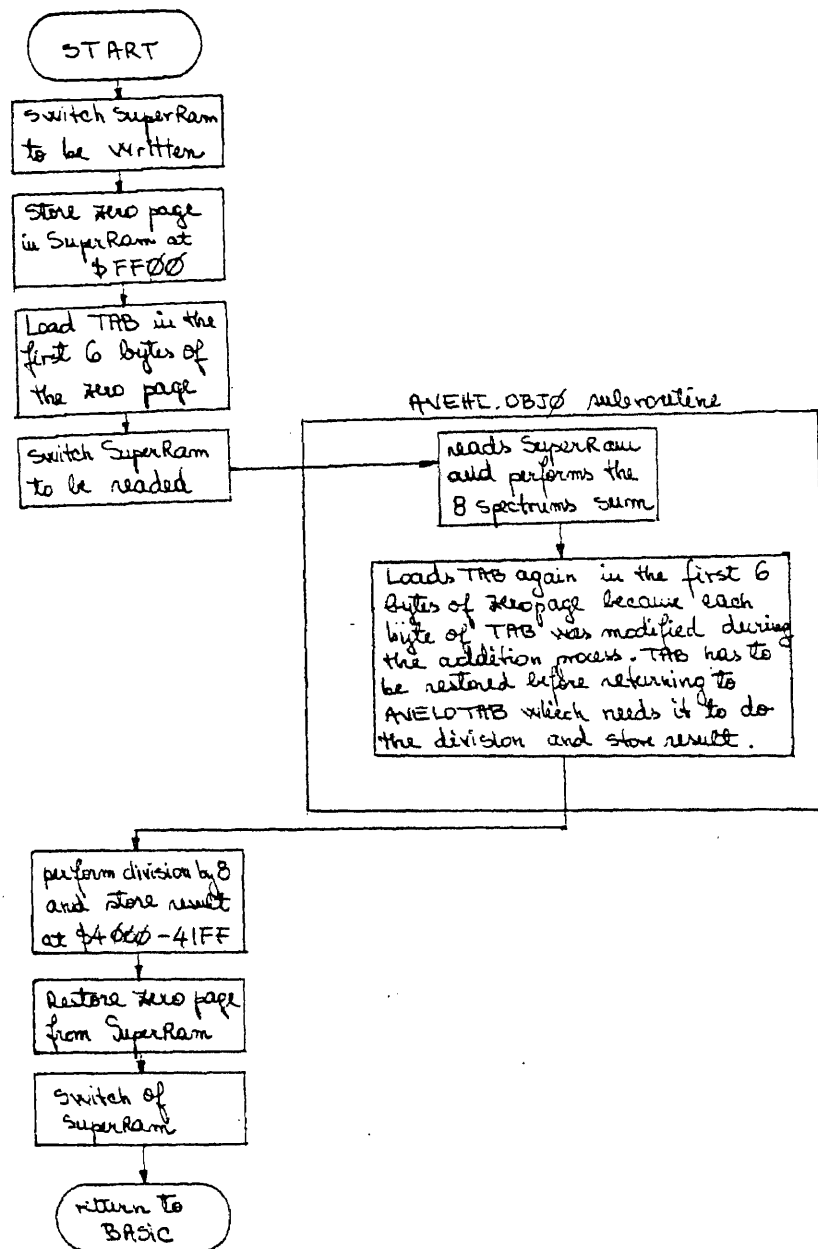 START
Switch SuperRam
to be written
Store zero page
in SuperRam at
$FFØØ
Load TAB in the
first 6 bytes of
the zero page
switch SuperRam
to be readed
AVEHI.OBJØ subroutine
reads SuperRam
and performs the
8 spectrums sum
Loads TAB again in the first 6
bytes of zeropage because each
byte of TAB was modified during
the addition process. TAB has to
be restored before returning to
AVELOTAB which needs it to do
the division and store result.
perform division by 8
and store result
at $4ØØØ-41FF
Restore zero page
from SuperRam
switch of
SuperRam
return to
BASIC